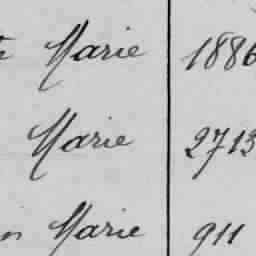 Marie 1886
Marie 2713
Marie 911